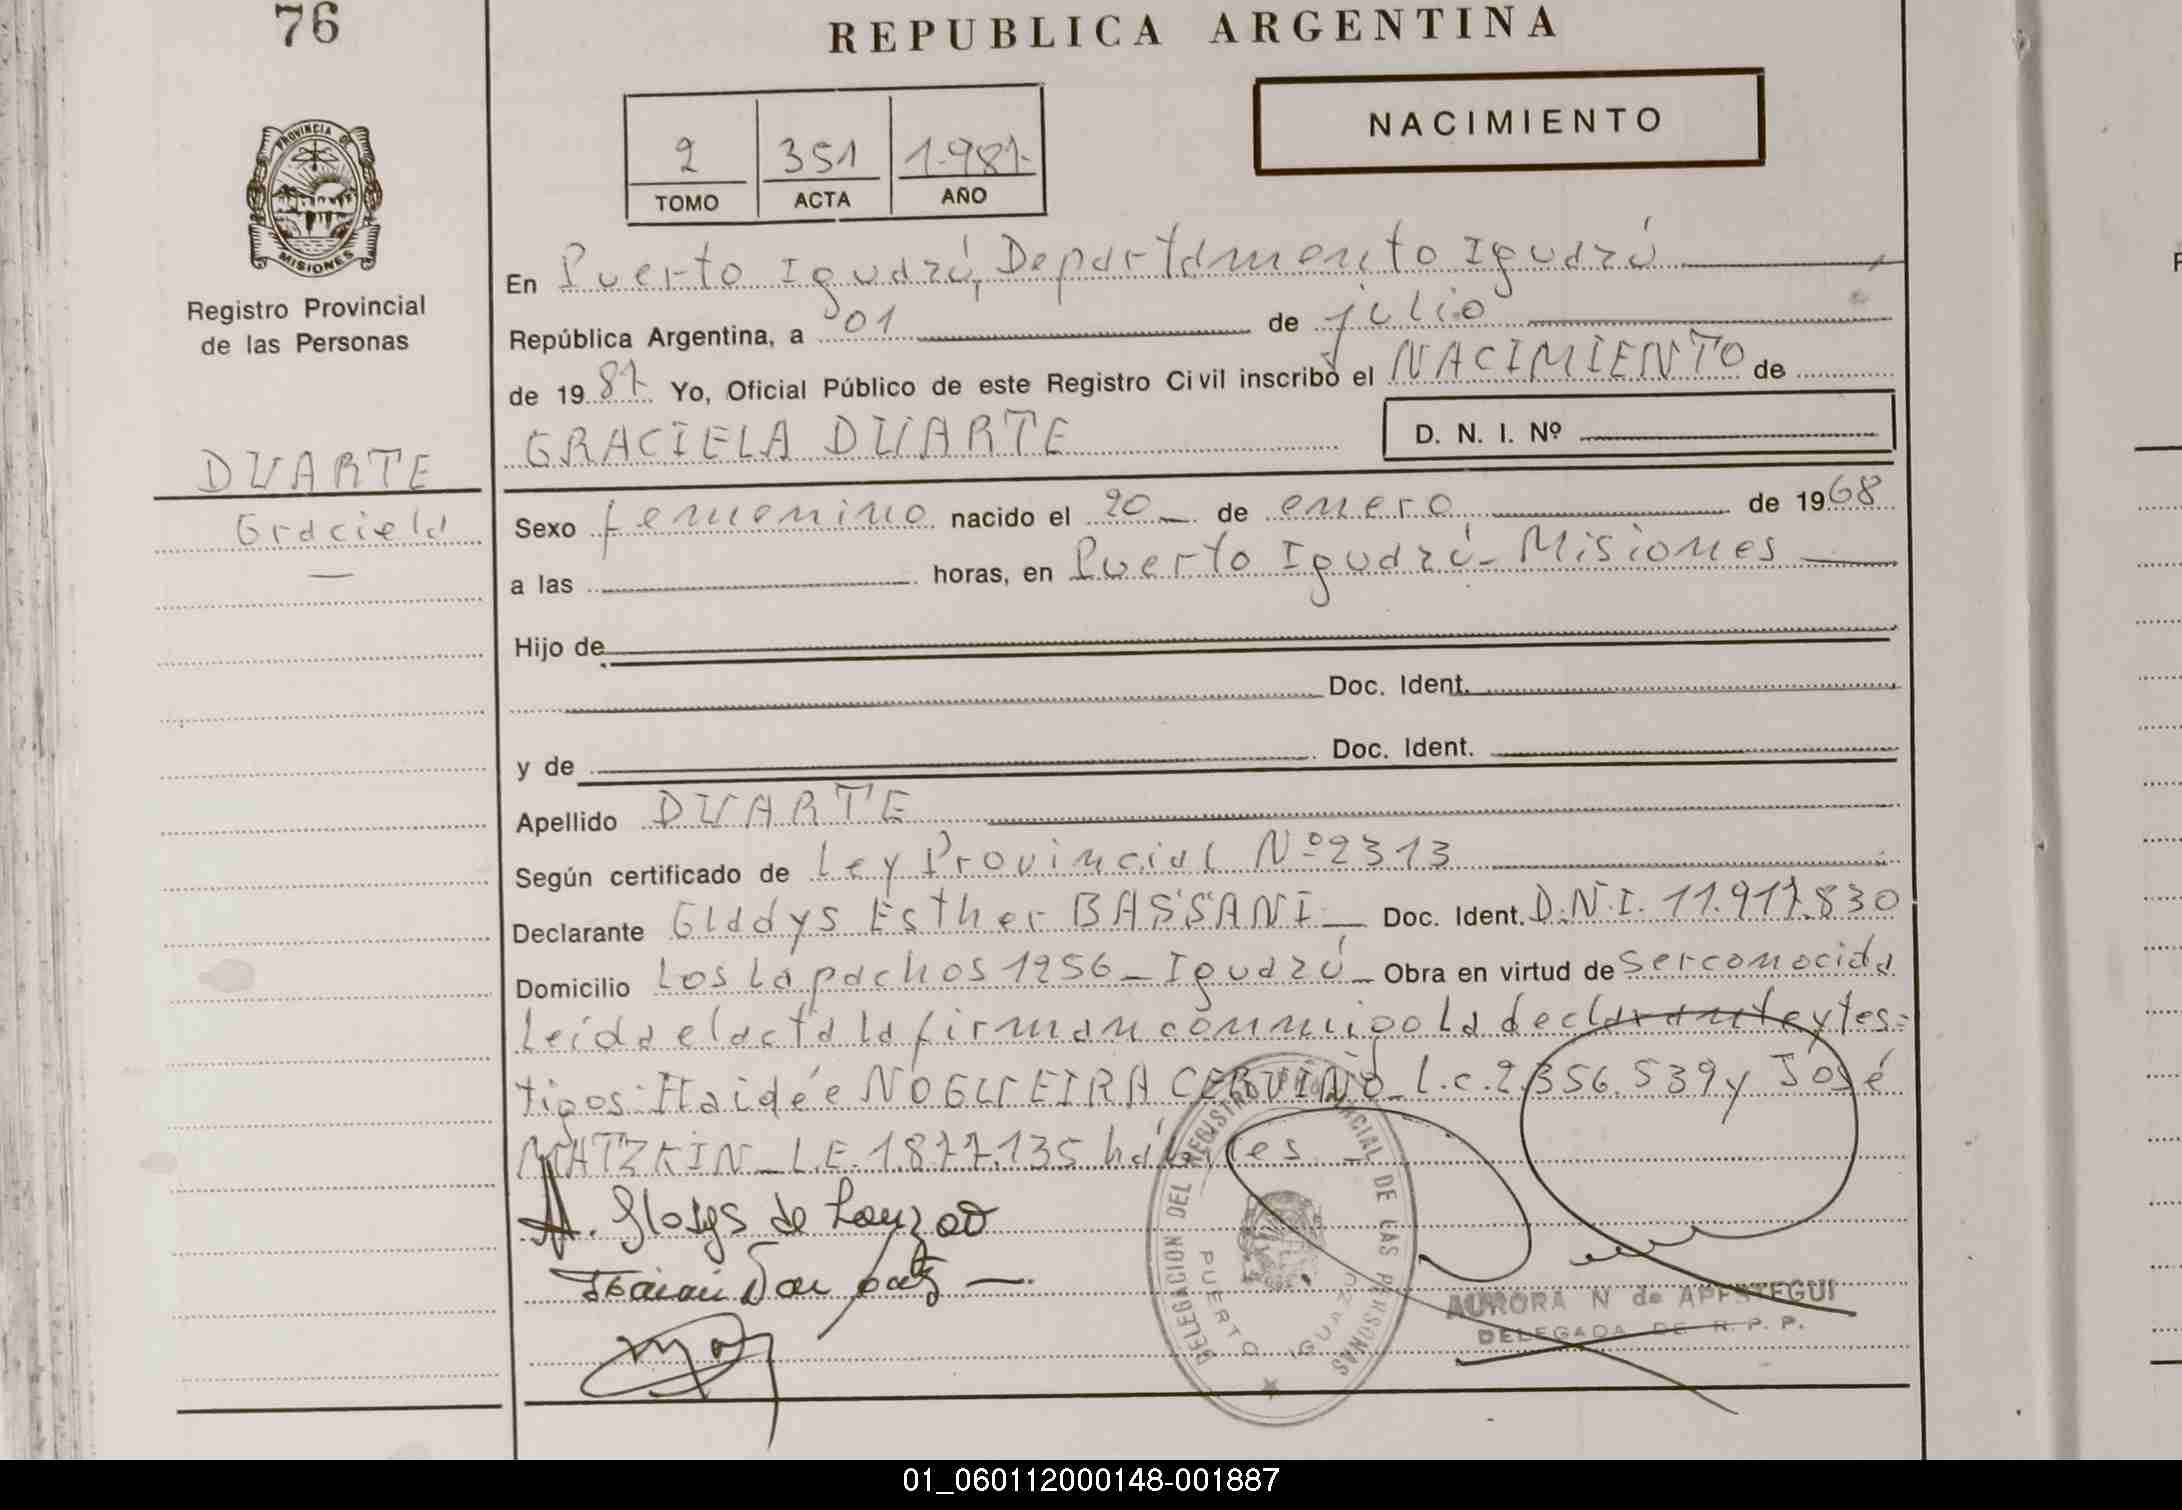 76
REPUBLICA ARGENTINA
NACIMIENTO
2 351 1.987-
TOMO ACTA AÑO
PROVINCIA DE
MISIONES
Registro Provincial
de las Personas
DUARTE
Graciela
—
En Puerto Iguazú, Departamento Iguazú
República Argentina, a 01 de julio
de 1987 Yo, Oficial Público de este Registro Civil inscribo el NACIMIENTO de
GRACIELA DUARTE D. N. I. Nº
Sexo femenino nacido el 20 de enero de 1968
a las horas, en Puerto Iguazú - Misiones
Hijo de
Doc. Ident.
y de Doc. Ident.
Apellido DUARTE
Según certificado de Ley Provincial Nº 2313
Declarante Gladys Esther BASSANI Doc. Ident. D.N.I. 11.917.830
Domicilio Los Lapachos 1256 - Iguazú - Obra en virtud de ser conocida
Leída el acta la firman conmigo la declarante y tes=
tigos: Haidée NOGUEIRA CERVIÑO - L.C. 2.356.539 y José
MATZKIN - L.E. 1.877.135 hábiles
DELEGACION DEL REGISTRO PROVINCIAL DE LAS PERSONAS
PUERTO IGUAZU
AURORA N de APESTEGUI
DELEGADA DE R. P. P.
01_060112000148-001887